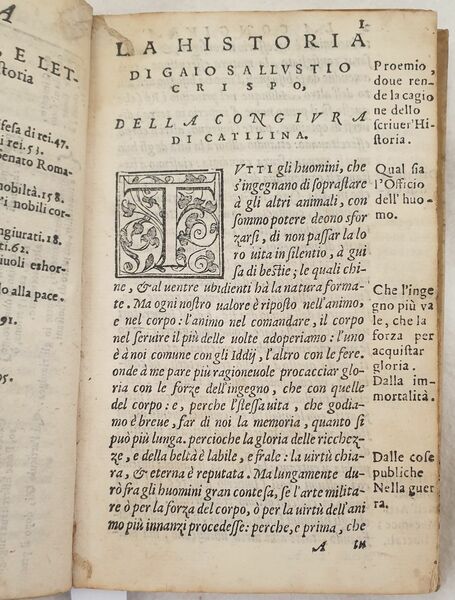 A
, E LET-
istoria
fesa di rei.47.
rei.53.
Senato Roma-
nobiltà.158.
i nobili cor-
ngiurati.18.
ti.62.
iuoli eshor-
do alla pace.
91.
95.
1
LA HISTORIA
DI GAIO SALLVSTIO
CRISPO,
DELLA CONGIVRA
DI CATILINA.
TVTTI gli huomini, che
s'ingegnano di soprastare
à gli altri animali, con
sommo potere deono sfor
zarsi, di non passar la lo
ro uita in silentio, à gui
sa di bestie; le quali chi-
ne, & al uentre ubidienti hà la natura forma-
te. Ma ogni nostro valore è riposto nell'animo,
e nel corpo: l'animo nel comandare, il corpo
nel seruire il piè delle volte adoperiamo: l'uno
è à noi comune con gli Iddij, l'altro con le fere.
onde à me pare più ragioneuole procacciar glo-
ria con le forze dell'ingegno, che con quelle
del corpo: e, perche l'stessa uita, che godia-
mo è breue, far di noi la memoria, quanto si
può più lunga. percioche la gloria delle ricchez-
ze, e della beltà è labile, e frale: la uirtù chia-
ra, & eterna è reputata. Ma lungamente du-
rò fra gli huomini gran contesa, se l'arte milita-
re ò per la forza del corpo, ò per la uirtù dell'ani
mo più innanzi procedesse: perche, e prima, che
A in
Proemio,
doue ren-
de la cagio
ne dello
scriuer'Hi-
storia.
Qual sia
l'Officio
dell'huo-
mo.
Che l'inge
gno più va
le, che la
forza per
acquistar
gloria.
Dalla im-
mortalità.
Dalle cose
publiche
Nella guer
ra.